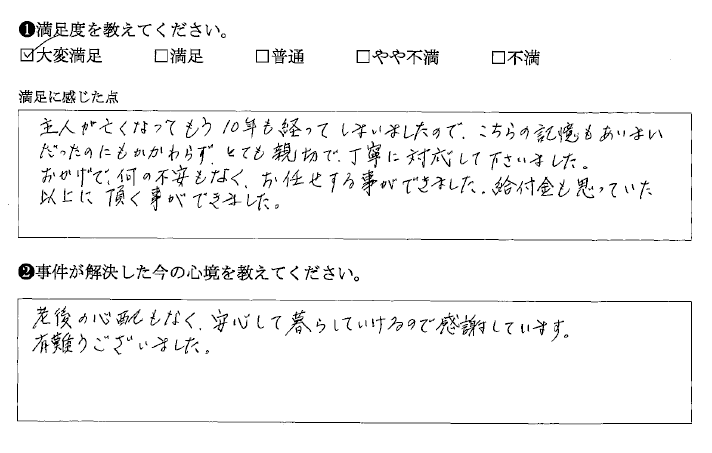 ❶満足度を教えてください。
☑大変満足 □満足 □普通 □やや不満 □不満
満足に感じた点
主人が亡くなってもう10年も経ってしまいましたので、こちらの記憶もあいまい
だったのにもかかわらず、とても親切で、丁寧に対応して下さいました。
おかげで、何の不安もなく、お任せする事ができました。給付金も思っていた
以上に頂く事ができました。
❷事件が解決した今の心境を教えてください。
老後の心配もなく、安心して暮らしていけるので感謝しています。
有難うございました。